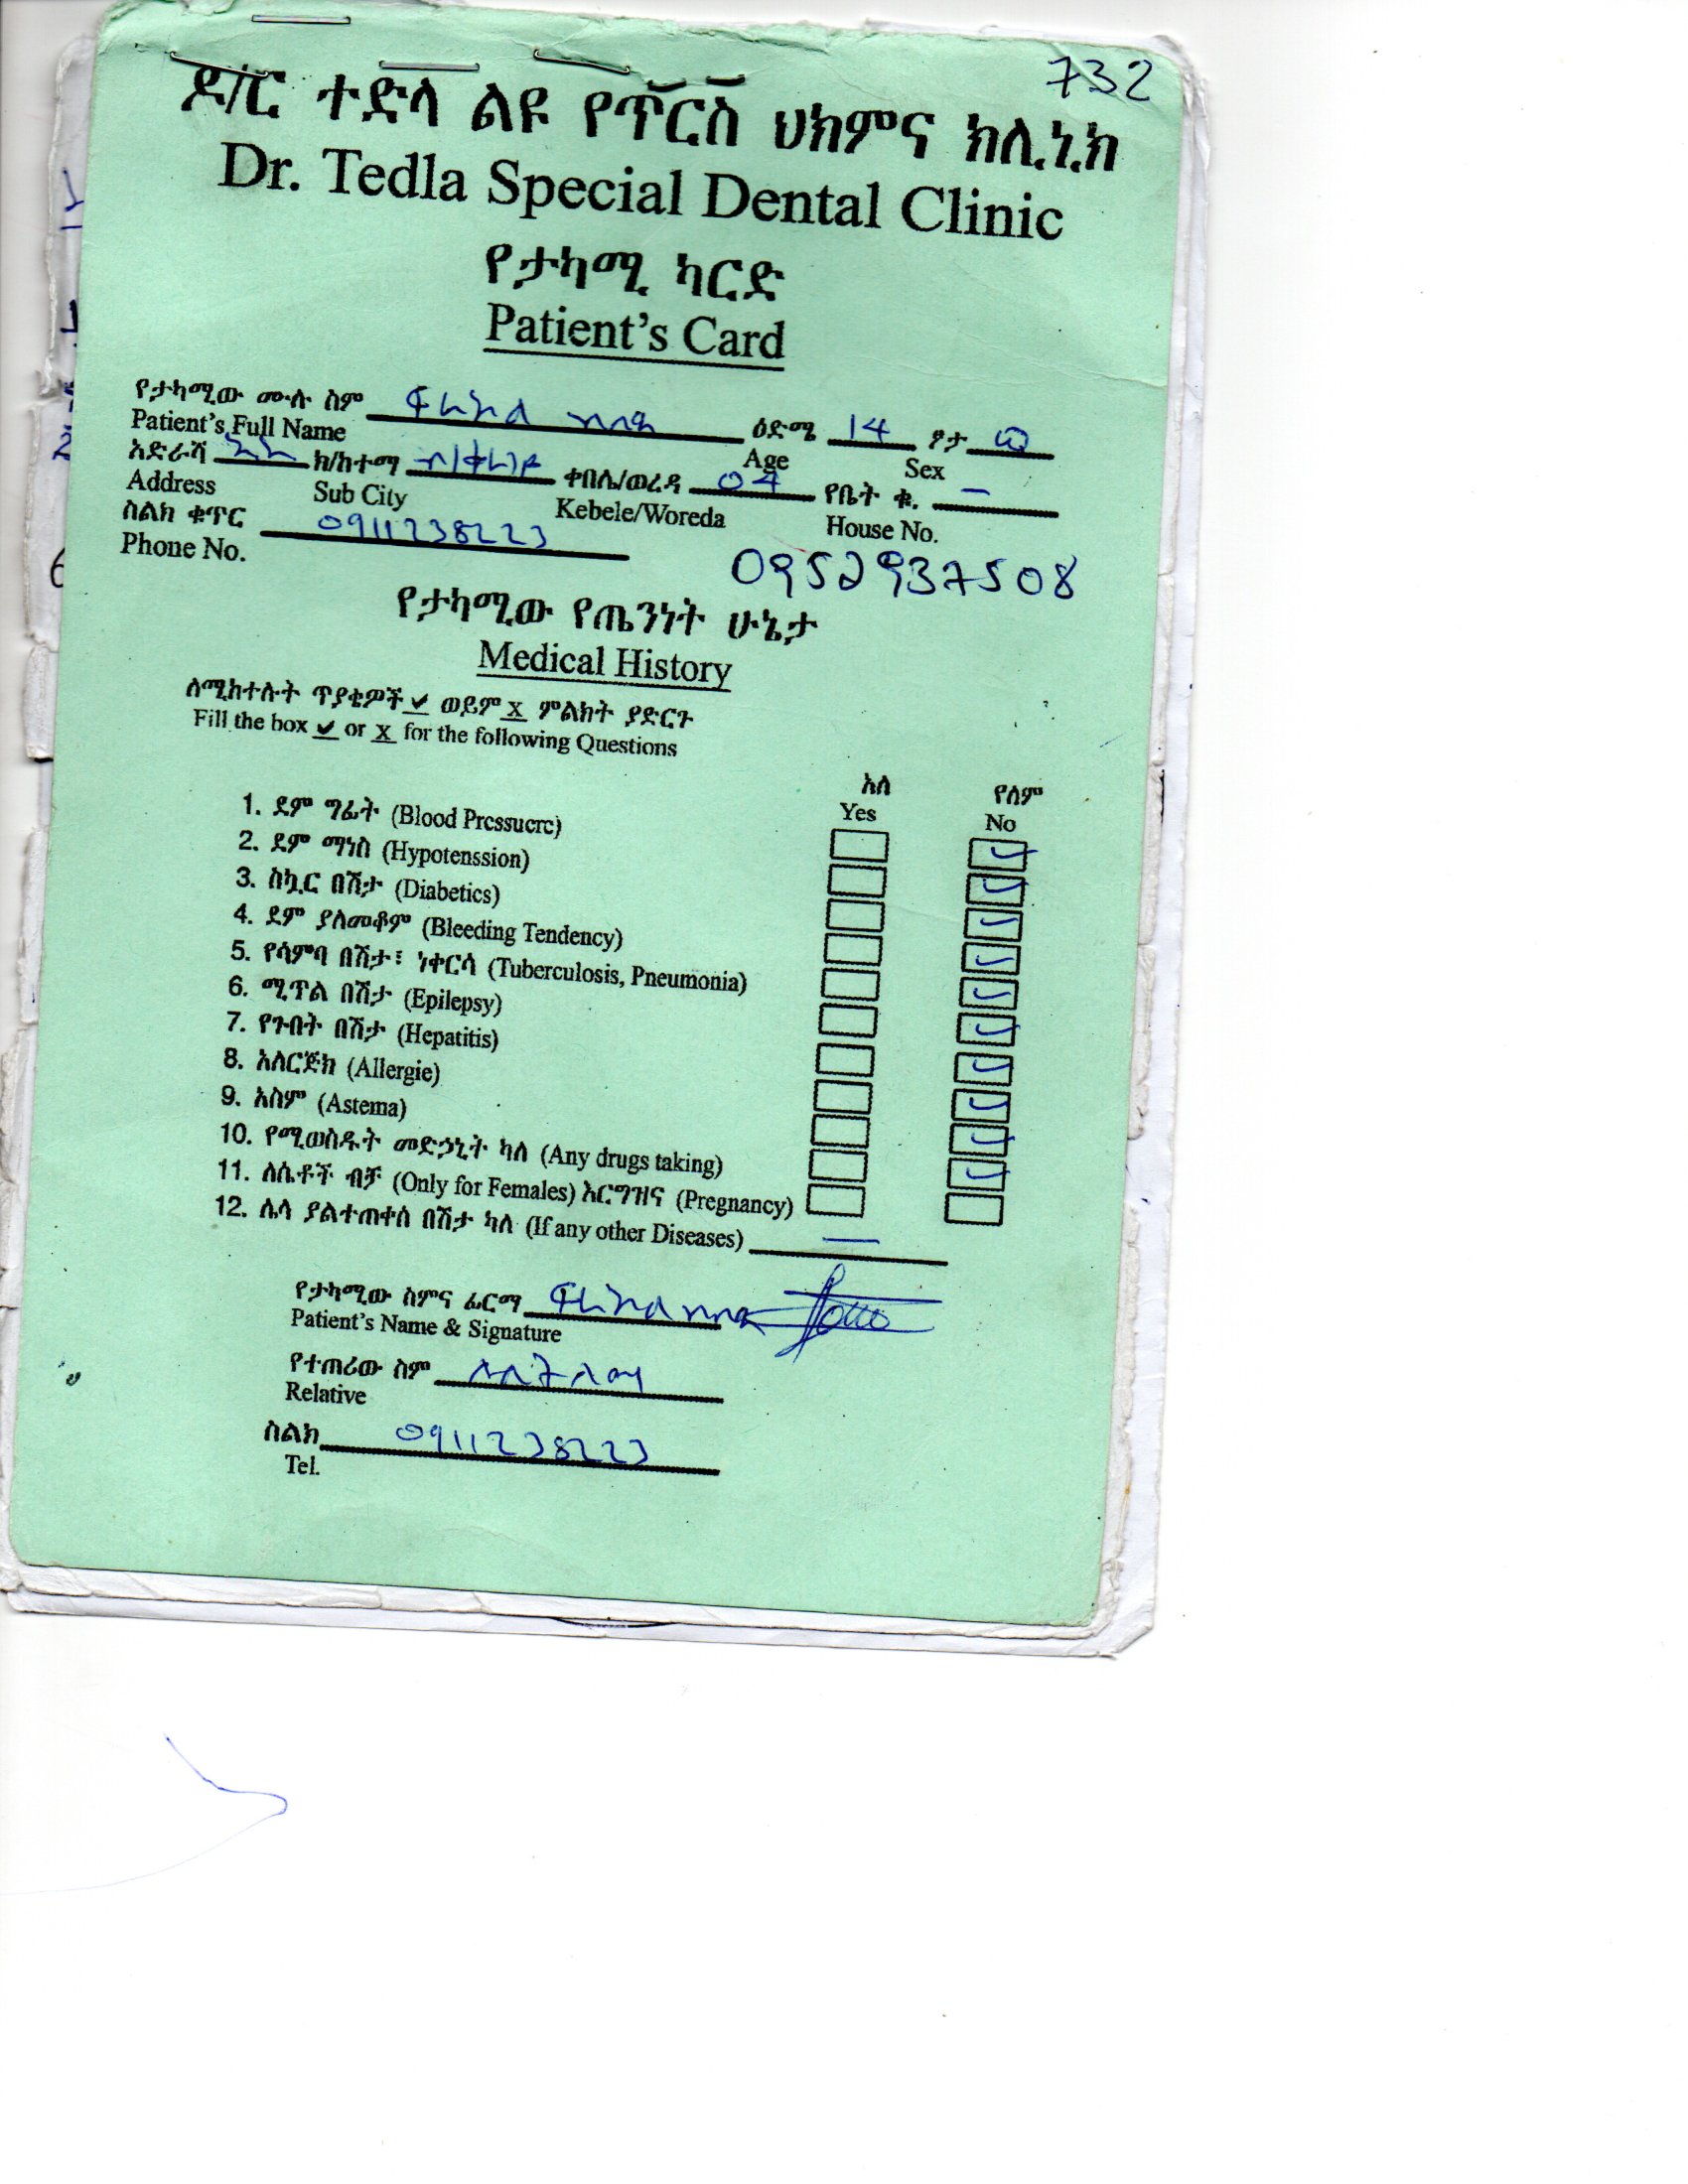 732
ዶ/ር ተድላ ልዩ የጥርስ ህክምና ክሊኒክ
Dr. Tedla Special Dental Clinic
የታካሚ ካርድ
Patient's Card
የታካሚው ሙሉ ስም ዕድሜ 14 ፆታ ወ
Patient's Full Name Age Sex
አድራሻ አአ ክ/ከተማ ቀበሌ/ወረዳ 04 የቤት ቁ. —
Address Sub City Kebele/Woreda House No.
ስልክ ቁጥር 0911238223
Phone No.
0952937508
የታካሚው የጤንነት ሁኔታ
Medical History
ለሚከተሉት ጥያቄዎች ✓ ወይም x ምልክት ያድርጉ
Fill the box ✓ or x for the following Questions
አለ የለም
Yes No
1. ደም ግፊት (Blood Pressuere) ✓
2. ደም ማነስ (Hypotenssion) ✓
3. ስኳር በሽታ (Diabetics) ✓
4. ደም ያለመቆም (Bleeding Tendency) ✓
5. የሳምባ በሽታ፣ ነቀርሳ (Tuberculosis, Pneumonia) ✓
6. ሚጥል በሽታ (Epilepsy) ✓
7. የጉበት በሽታ (Hepatitis) ✓
8. አለርጅክ (Allergie) ✓
9. አስም (Astema) ✓
10. የሚወስዱት መድኃኒት ካለ (Any drugs taking) ✓
11. ለሴቶች ብቻ (Only for Females) እርግዝና (Pregnancy)
12. ሌላ ያልተጠቀሰ በሽታ ካለ (If any other Diseases) —
የታካሚው ስምና ፊርማ
Patient's Name & Signature
የተጠሪው ስም
Relative
ስልክ 0911238223
Tel.